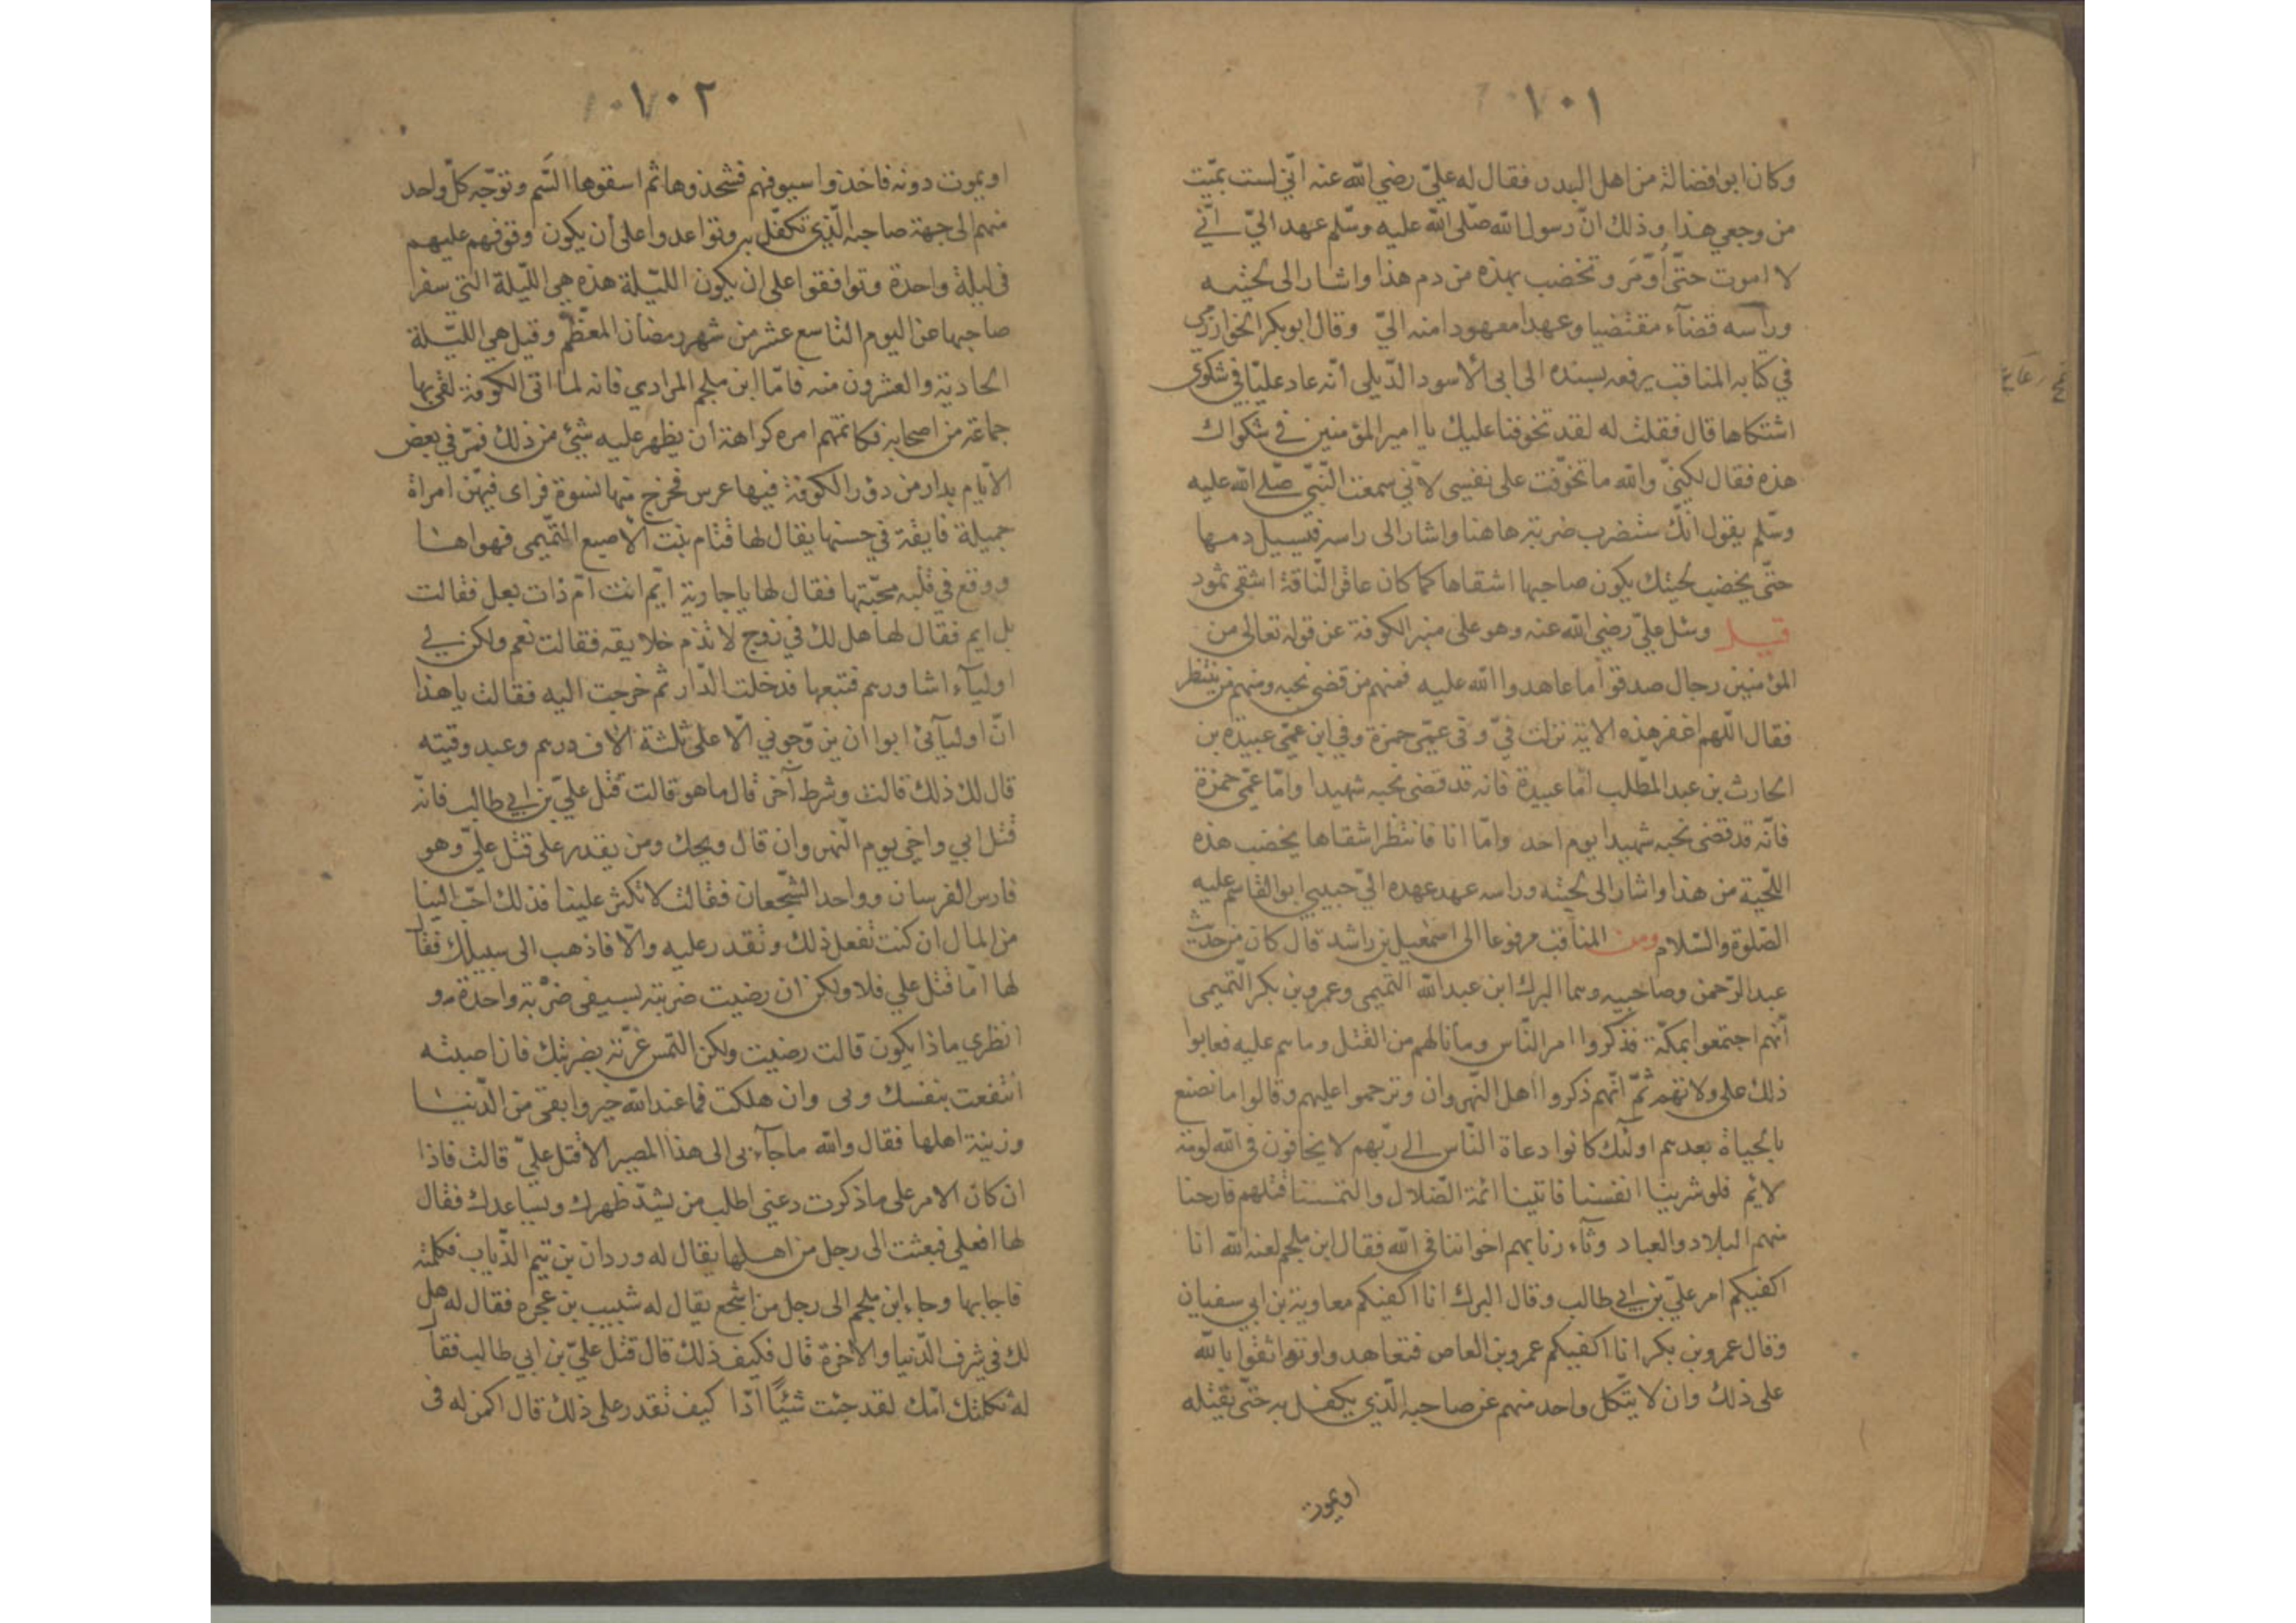 ١٠١
وكان ابو فضالة من اهل البدر فقال له عليّ رضي الله عنه انّي لست بميّت
من وجعي هذا وذلك انّ رسول الله صلّى الله عليه وسلّم عهد اليّ انّي
لا اموت حتّى أومّر وتخضب بهذه من دم هذا واشار الى لحيته
ورأسه قضآء مقتضيا وعهدا معهودا منه اليّ وقال ابو بكر الخوارزمي
في كتابه المناقب يرفعه بسنده الى ابى الاسود الدّيلى أنّه عاد عليّا في شكوى
اشتكاها قال فقلت له لقد تخوفنا عليك يا امير المؤمنين في شكواك
هذه فقال لكنّي والله ما تخوّفت على نفسى لانّي سمعت النّبيّ صلّى الله عليه
وسلّم يقول انّك ستضرب ضربة هاهنا واشار الى راسه فيسيل دمها
حتّى يخضب لحيتك يكون صاحبها اشقاها كما كان عاقر النّاقة اشقى ثمود
قيل وسئل عليّ رضي الله عنه وهو على منبر الكوفة عن قوله تعالى من
المؤمنين رجال صدقوا ما عاهدوا الله عليه فمنهم من قضى نحبه ومنهم من ينتظر
فقال اللّهم اغفر هذه الاية نزلت فيّ وفى عمّى حمزة وفي ابن عمّى عبيدة بن
الحارث بن عبد المطّلب امّا عبيدة فانه قد قضى نحبه شهيدا وامّا عمّى حمزة
فانّه قد قضى نحبه شهيدا يوم احد وامّا انا فانتظر اشقاها يخضب هذه
اللّحية من هذا واشار الى لحيته وراسه عهد عهده اليّ حبيبي ابو القاسم عليه
الصّلوة والسّلام ومن المناقب مرفوعا الى اسمعيل بن راشد قال كان من حديث
عبد الرّحمن وصاحبيه وهما البرك ابن عبد الله التّميمى وعمرو بن بكر التّميمى
أنّهم اجتمعوا بمكّة فذكروا امر النّاس وما نالهم من القتل وما هم عليه فعابوا
ذلك على ولاتهم ثمّ انّهم ذكروا اهل النّهروان وترحموا عليهم وقالوا ما نصنع
بالحياة بعدهم اولئك كانوا دعاة النّاس الى ربّهم لا يخافون فى الله لومة
لايم فلو شرينا انفسنا فاتينا ائمة الضّلال والتمسنا قتلهم فارحنا
منهم البلاد والعباد وثآرنا بهم اخواننا فى الله فقال ابن ملجم لعنه الله انا
اكفيكم امر عليّ بن ابي طالب وقال البرك انا اكفيكم معاوية بن ابي سفيان
وقال عمرو بن بكر انا اكفيكم عمرو بن العاص فتعاهدوا وتواثقوا بالله
على ذلك وان لا يتّكل واحد منهم عن صاحبه الّذي يكفل به حتّى يقتله
او يموت
١٠٢
او يموت دونه فاخذوا سيوفهم فشحذوها ثم اسقوها السّم وتوجّه كلّ واحد
منهم الى جهة صاحبه الّذي تكفّل به وتواعدوا على أن يكون وقوفهم عليهم
فى ليلة واحدة وتوافقوا على ان يكون الليّلة هذه هي اللّيلة التي سفرا
صاحبها عن اليوم التاسع عشر من شهر رمضان المعظّم وقيل هي الليّلة
الحادية والعشرون منه فامّا ابن ملجم المرادي فانه لما اتى الكوفة لقى بها
جماعة من اصحابه فكاتمهم امره كراهة ان يظهر عليه شئ من ذلك فمرّ في بعض
الأيام بدار من دور الكوفة فيها عرس فخرج منها نسوة فراى فيهنّ امراة
جميلة فايقة في حسنها يقال لها قتام بنت الأصبع التّميمى فهواها
ووقع في قلبه محبّتها فقال لها يا جارية ايّم انت ام ذات بعل فقالت
بل ايم فقال لها هل لك في زوج لا تذم خلايقه فقالت نعم ولكن لي
اوليآء اشاورهم فتبعها فدخلت الدّار ثم خرجت اليه فقالت يا هذا
انّ اوليآئي ابوا ان يزوّجوني الّا على ثلثة الاف درهم وعبد وقينه
قال لك ذلك قالت وشرط آخر قال ما هو قالت قتل عليّ بن ابي طالب فانّه
قتل ابي واخي يوم النّهروان قال ويحك ومن يقدر على قتل عليّ وهو
فارس الفرسان وواحد الشّجعان فقالت لا تكثر علينا فذلك احبّ الينا
من المال ان كنت تفعل ذلك وتقدر عليه والّا فاذهب الى سبيلك فقال
لها امّا قتل علي فلا ولكن ان رضيت ضربته بسيفى ضربة واحدة و
انظري ماذا يكون قالت رضيت ولكن التمس غرّته بضربتك فان اصبته
انتفعت بنفسك وبى وان هلكت فما عند الله خير وابقى من الدّنيا
وزينة اهلها فقال والله ما جآء بى الى هذا المصر الا قتل عليّ قالت فاذا
ان كان الامر على ما ذكرت دعني اطلب من يشدّ ظهرك ويساعدك فقال
لها افعلي فبعثت الى رجل من اهلها يقال له وردان بن تيم الذّباب فكلمته
فاجابها وجاء ابن ملجم الى رجل من اشجع يقال له شبيب بن عجره فقال له هل
لك في شرف الدّنيا والاخرة قال فكيف ذلك قال قتل عليّ بن ابي طالب فقال
له ثكلتك امّك لقد جئت شيئًا ادّا كيف تقدر على ذلك قال اكمن له فى